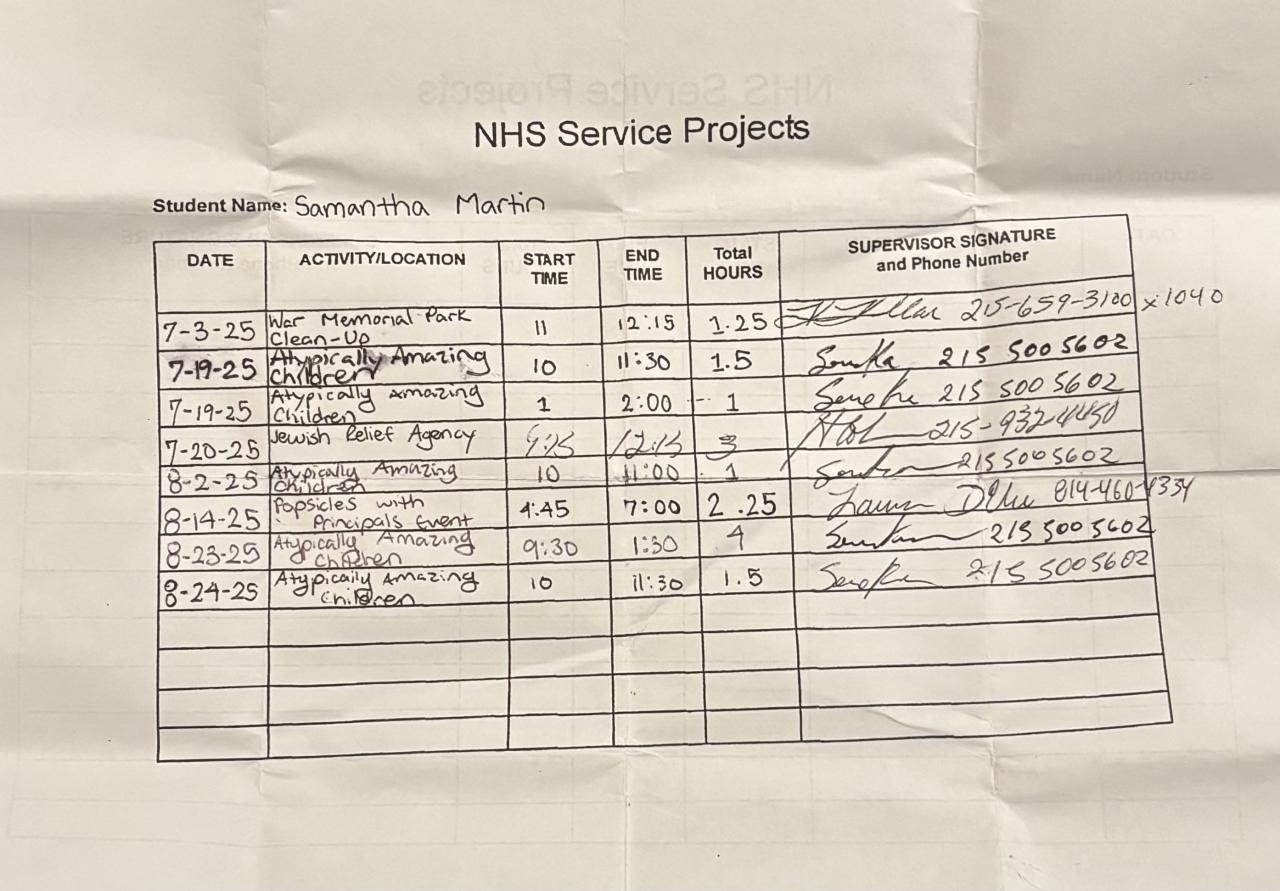 NHS Service Projects
Student Name: Samantha Martin
DATE ACTIVITY/LOCATION START TIME END TIME Total HOURS SUPERVISOR SIGNATURE and Phone Number
7-3-25 War Memorial Park Clean-Up 11 12:15 1.25 215-659-3100 x1040
7-19-25 Atypically Amazing Children 10 11:30 1.5 215 500 5602
7-19-25 Atypically Amazing Children 1 2:00 1 215 500 5602
7-20-25 Jewish Relief Agency 9:15 12:15 3 215-932-4450
8-2-25 Atypically Amazing Children 10 11:00 1 215 500 5602
8-14-25 Popsicles with Principals Event 4:45 7:00 2.25 814-460-4334
8-23-25 Atypically Amazing Children 9:30 1:30 4 215 500 5602
8-24-25 Atypically Amazing Children 10 11:30 1.5 215 500 5602